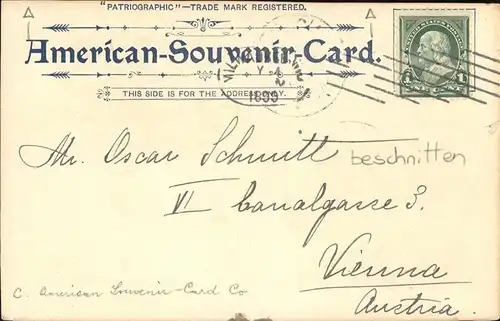 "PATRIOGRAPHIC"—TRADE MARK REGISTERED.
American-Souvenir-Card.
THIS SIDE IS FOR THE ADDRESS ONLY.
1899
1 1
Mr. Oscar Schmitt beschnitten
VI Canalgasse 3.
Vienna
Austria.
C. American Souvenir-Card Co